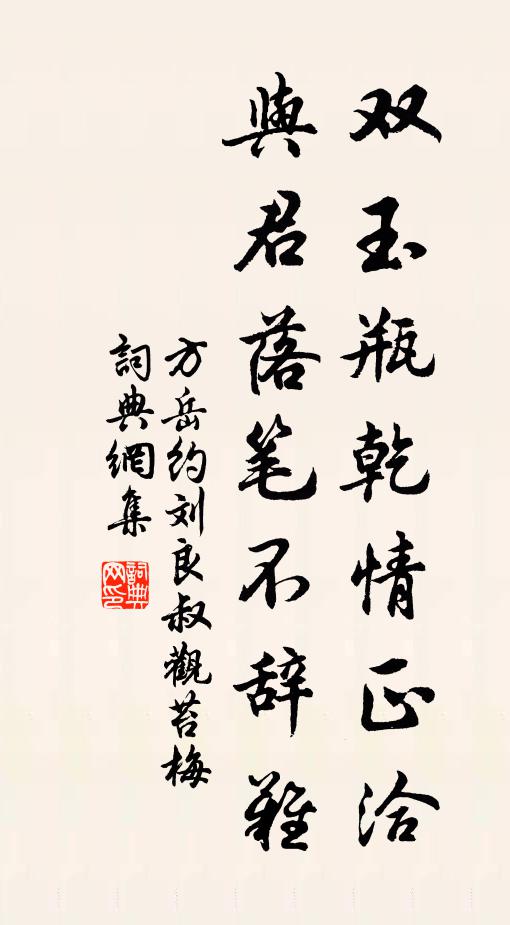 双玉瓶乾情正洽
與君落笔不辞難
方岳约刘良叔觀苔梅
詞典網集
詞典网印